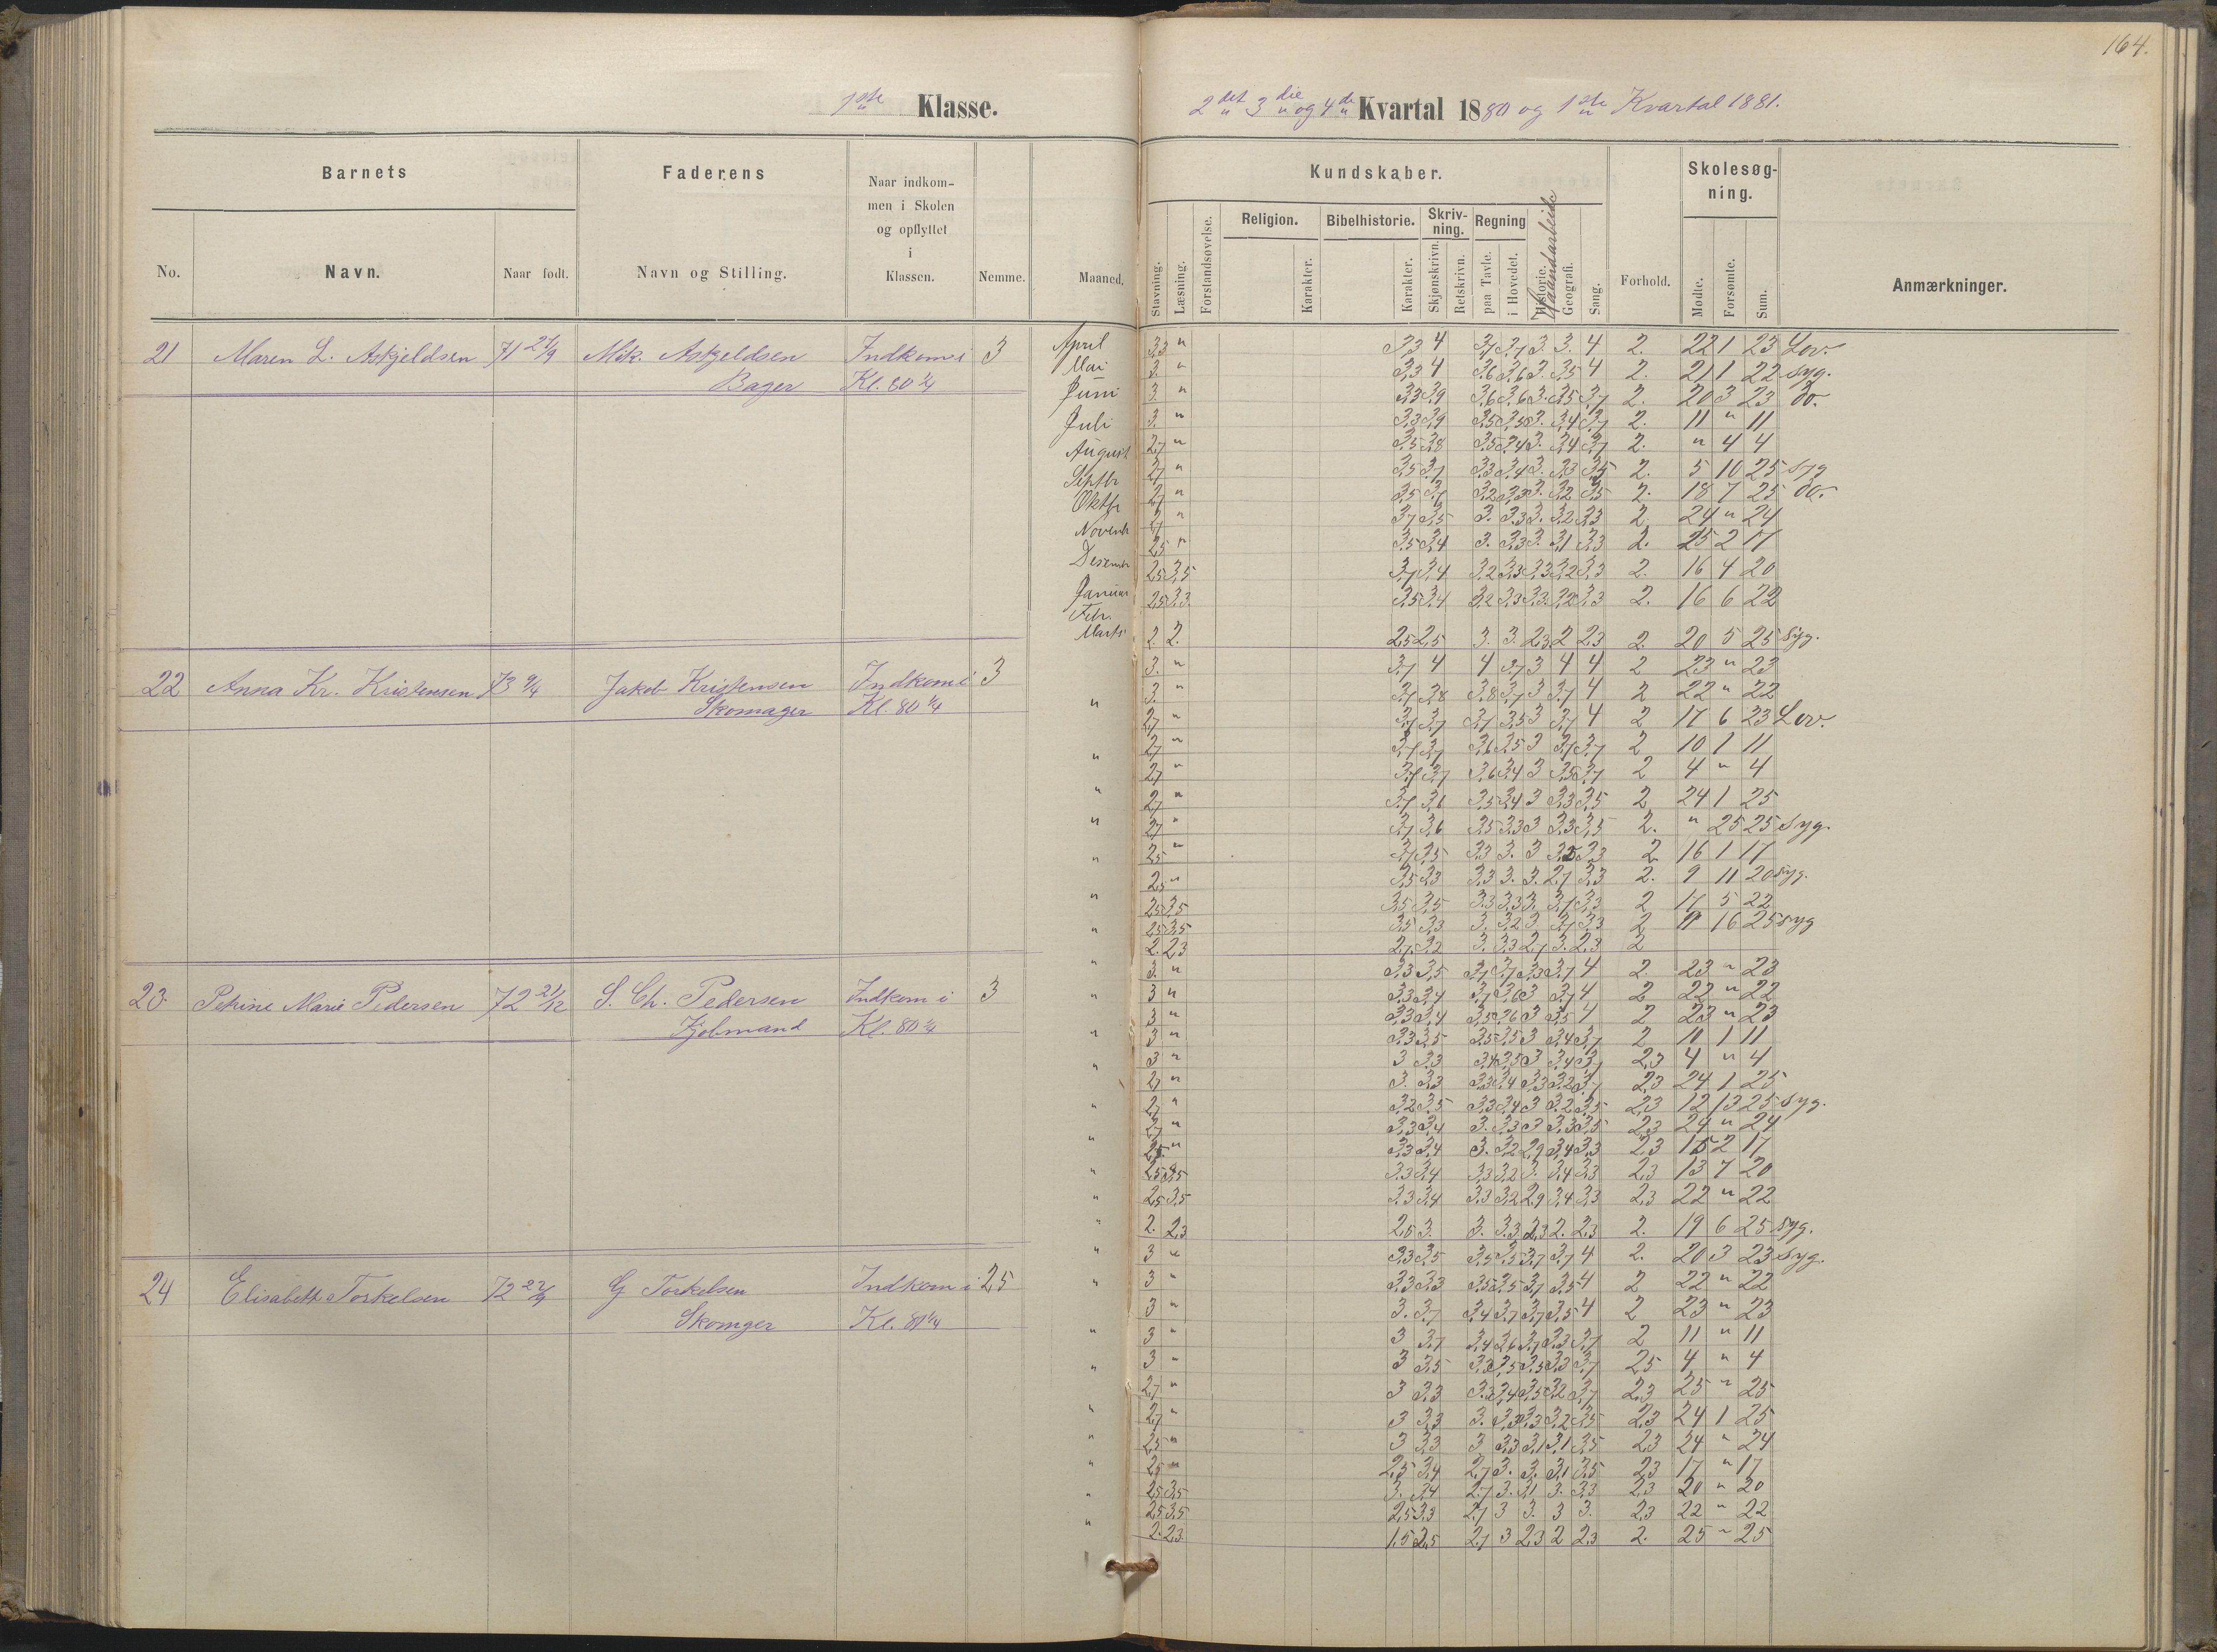 164.
1ste Klasse.
2det 3die og 4de Kvartal 1880 og 1ste Kvartal 1881.
Barnets
Faderens
Naar indkom-
men i Skolen
og opflyttet
i
Klassen.
Nemme.
Maaned.
No.
Navn.
Naar født.
Navn og Stilling.
Kundskaber.
Skolesøg-
ning.
Stavning.
Læsning.
Forstandsøvelse.
Religion.
Karakter.
Bibelhistorie.
Karakter.
Skriv-
ning.
Skjønskrivn.
Retskrivn.
Regning
paa Tavle.
i Hovedet.
Historie.
Haandarbeide
Geografi.
Sang.
Forhold.
Mødte.
Forsømte.
Sum.
Anmærkninger.
21 Maren L. Askjeldsen 71 Mik. Askjeldsen Indkom i 3
Bager Kl. 80 1/4
April 3,3 " 3,3 4 3,7 3,7 3. 3. 4 2. 22 1 23 Lov.
Mai 3. " 3,3 4 3,6 3,6 3. 3,5 4 2. 21 1 22 syg.
Juni 3. " 3,3 3,9 3,6 3,6 3. 3,5 3,7 2. 20 3 23 do.
Juli 3. " 3,3 3,9 3,5 3,5 3. 3,4 3,7 2. 11 " 11
August 2,7 " 3,5 3,8 3,5 3,4 3. 3,4 3,7 2. " 4 4
Septbr 2,7 " 3,5 3,7 3,3 3,4 3. 3,3 3,5 2. 5 10 25 syg
Oktbr 2,7 " 3,5 3,7 3,2 3,3 3. 3,2 3,5 2. 18 7 25 do.
Novemb 2,7 " 3,7 3,5 3. 3,3 3. 3,2 3,3 2 24 " 24
Desemb 2,5 " 3,5 3,4 3. 3,3 3. 3,1 3,3 2. 25 2 17
Januar 2,5 3,5 3,7 3,4 3,2 3,3 3,3 3,2 3,3 2. 16 4 20
Febr. 2,5 3,3 3,5 3,4 3,2 3,3 3,3 3,2 3,3 2. 16 6 22
Marts 2. 2. 2,5 2,5 3. 3. 2,3 2 2,3 2. 20 5 25 Syg.
22 Anna Kr. Kristensen 73 9/4 Jakob Kristensen Indkom i 3
Skomager Kl. 80 1/4
3. " 3,7 4 4 3,7 3 4 4 2 23 " 23
3. " 3,7 3,8 3,8 3,7 3 3,7 4 2 22 " 22
2,7 " 3,7 3,7 3,7 3,5 3 3,7 4 2 17 6 23 Lov.
2,7 " 3,7 3,7 3,6 3,5 3 3,7 3,7 2 10 1 11
2,7 " 3,7 3,7 3,6 3,4 3 3,5 3,7 2 4 " 4
2,7 " 3,7 3,6 3,5 3,4 3 3,3 3,5 2 24 1 25
2,7 " 3,7 3,6 3,5 3,3 3 3,3 3,5 2. " 25 25 syg.
2,5 " 3,7 3,5 3,3 3. 3 3,3 2 16 1 17
2,5 " 3,5 3,3 3,3 3. 3. 2,7 3,3 2. 9 11 20 syg.
2,5 3,5 3,5 3,5 3,3 3,3 3. 3,7 3,3 2 17 5 22
2,5 3,5 3,5 3,3 3. 3,2 3 2,7 3,3 2 16 25 syg
2. 2,3 2,7 3,2 3. 3,3 2,7 3. 2,3 2
23 Petrine Marie Pedersen 72 21/12 S. Ch. Pedersen Indkom i 3
Kjøbmand Kl. 80 1/4
3. " 3,3 3,5 3,7 3,7 3,3 3,7 4 2. 23 " 23
3 " 3,3 3,4 3,7 3,6 3 3,7 4 2 22 " 22
3 " 3,3 3,4 3,5 3,6 3 3,5 4 2 23 " 23
3 " 3,3 3,5 3,5 3,5 3 3,4 3,7 2 10 1 11
3 " 3 3,3 3,4 3,5 3 3,4 3,7 2,3 4 " 4
2,7 " 3. 3,3 3,3 3,4 3,3 3,2 3,7 2,3 24 1 25
2,7 " 3,2 3,5 3,3 3,4 3 3,2 3,5 2,3 12 13 25 syg.
2,7 " 3,3 3,4 3. 3,3 3 3,3 3,5 2,3 24 " 24
2,5 " 3,3 3,4 3. 3,2 2,9 3,4 3,3 2,3 15 2 17
2,5 3,5 3,3 3,4 3,3 3,2 3. 3,4 3,3 2,3 13 7 20
2,5 3,5 3,3 3,4 3,3 3,2 2,9 3,4 3,3 2,3 22 " 22
2. 2,3 2,5 3. 3. 3,3 2,3 2. 2,3 2. 19 6 25 syg.
24 Elisabeth Torkelsen 72 G Torkelsen Indkom i 2,5
Skomger Kl. 80 1/4
3 " 3,3 3,5 3,5 3,5 3,7 3,7 4 2. 20 3 23 Syg.
3 " 3,3 3,3 3,5 3,5 3,7 3,5 4 2 22 " 22
3 " 3. 3,7 3,4 3,7 3,7 3,5 4 2 23 " 23
3 " 3 3,7 3,4 3,6 3,7 3,3 3,7 2 11 " 11
3 " 3 3,5 3,3 3,5 3,5 3,3 3,7 2,5 4 " 4
2,7 " 3 3,3 3,3 3,4 3,5 3,2 3,7 2,3 25 " 25
2,7 " 3 3,3 3. 3,3 3,3 3,2 3,5 2,3 24 1 25
2,5 " 3 3,3 3 3,3 3,1 3,1 3,5 2,3 24 " 24
2,5 " 2,5 3,4 2,7 3. 3. 3,1 3,5 2,3 17 " 17
2,5 3,5 3. 3,4 2,7 3. 3,1 3. 3,3 2,3 20 " 20
2,5 3,5 2,5 3,3 2,7 3 3. 3 3. 2,3 22 " 22
2. 2,3 1,5 2,5 2,7 3 2,3 2 2,3 2. 25 " 25